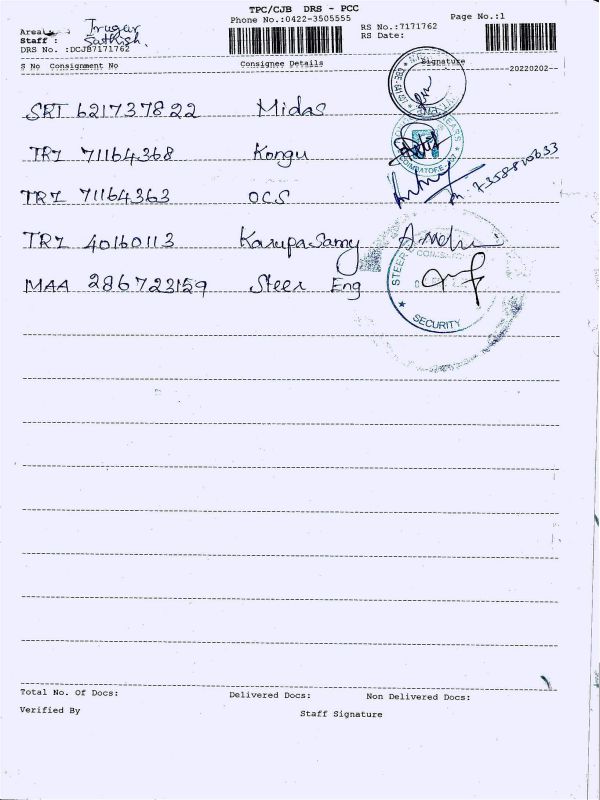 TPC/CJB DRS - PCC
Phone No.:0422-3505555
Page No.:1
Area
Staff : Sathish.
DRS No. :DCJB7171762
RS No.:7171762
RS Date:
S No Consignment No Consignee Details Signature --20220202--
SRT 621737822 Midas
TRZ 71164368 Kongu
TRZ 71164363 OCS
TRZ 40160113 Karupasamy
MAA 286723159 Steer Eng
STEER
SECURITY
Total No. Of Docs: Delivered Docs: Non Delivered Docs:
Verified By Staff Signature